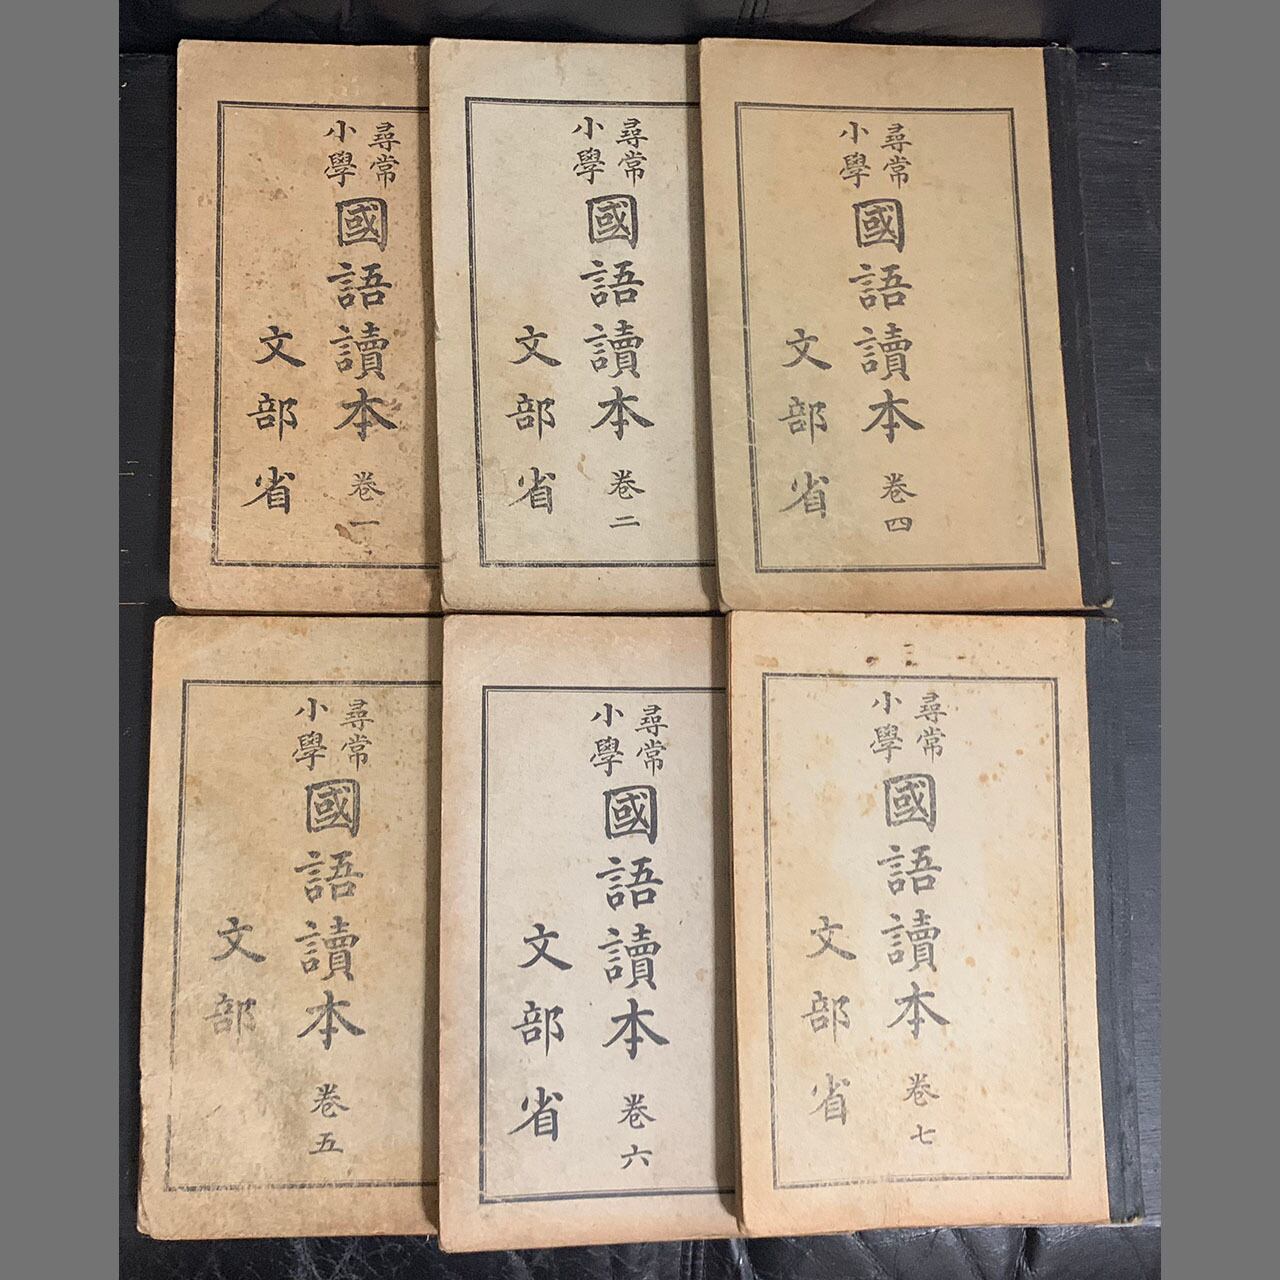 尋常
小學
國語讀本 卷一
文部省
尋常
小學
國語讀本 卷二
文部省
尋常
小學
國語讀本 卷四
文部省
尋常
小學
國語讀本 卷五
文部
尋常
小學
國語讀本 卷六
文部省
尋常
小學
國語讀本 卷七
文部省